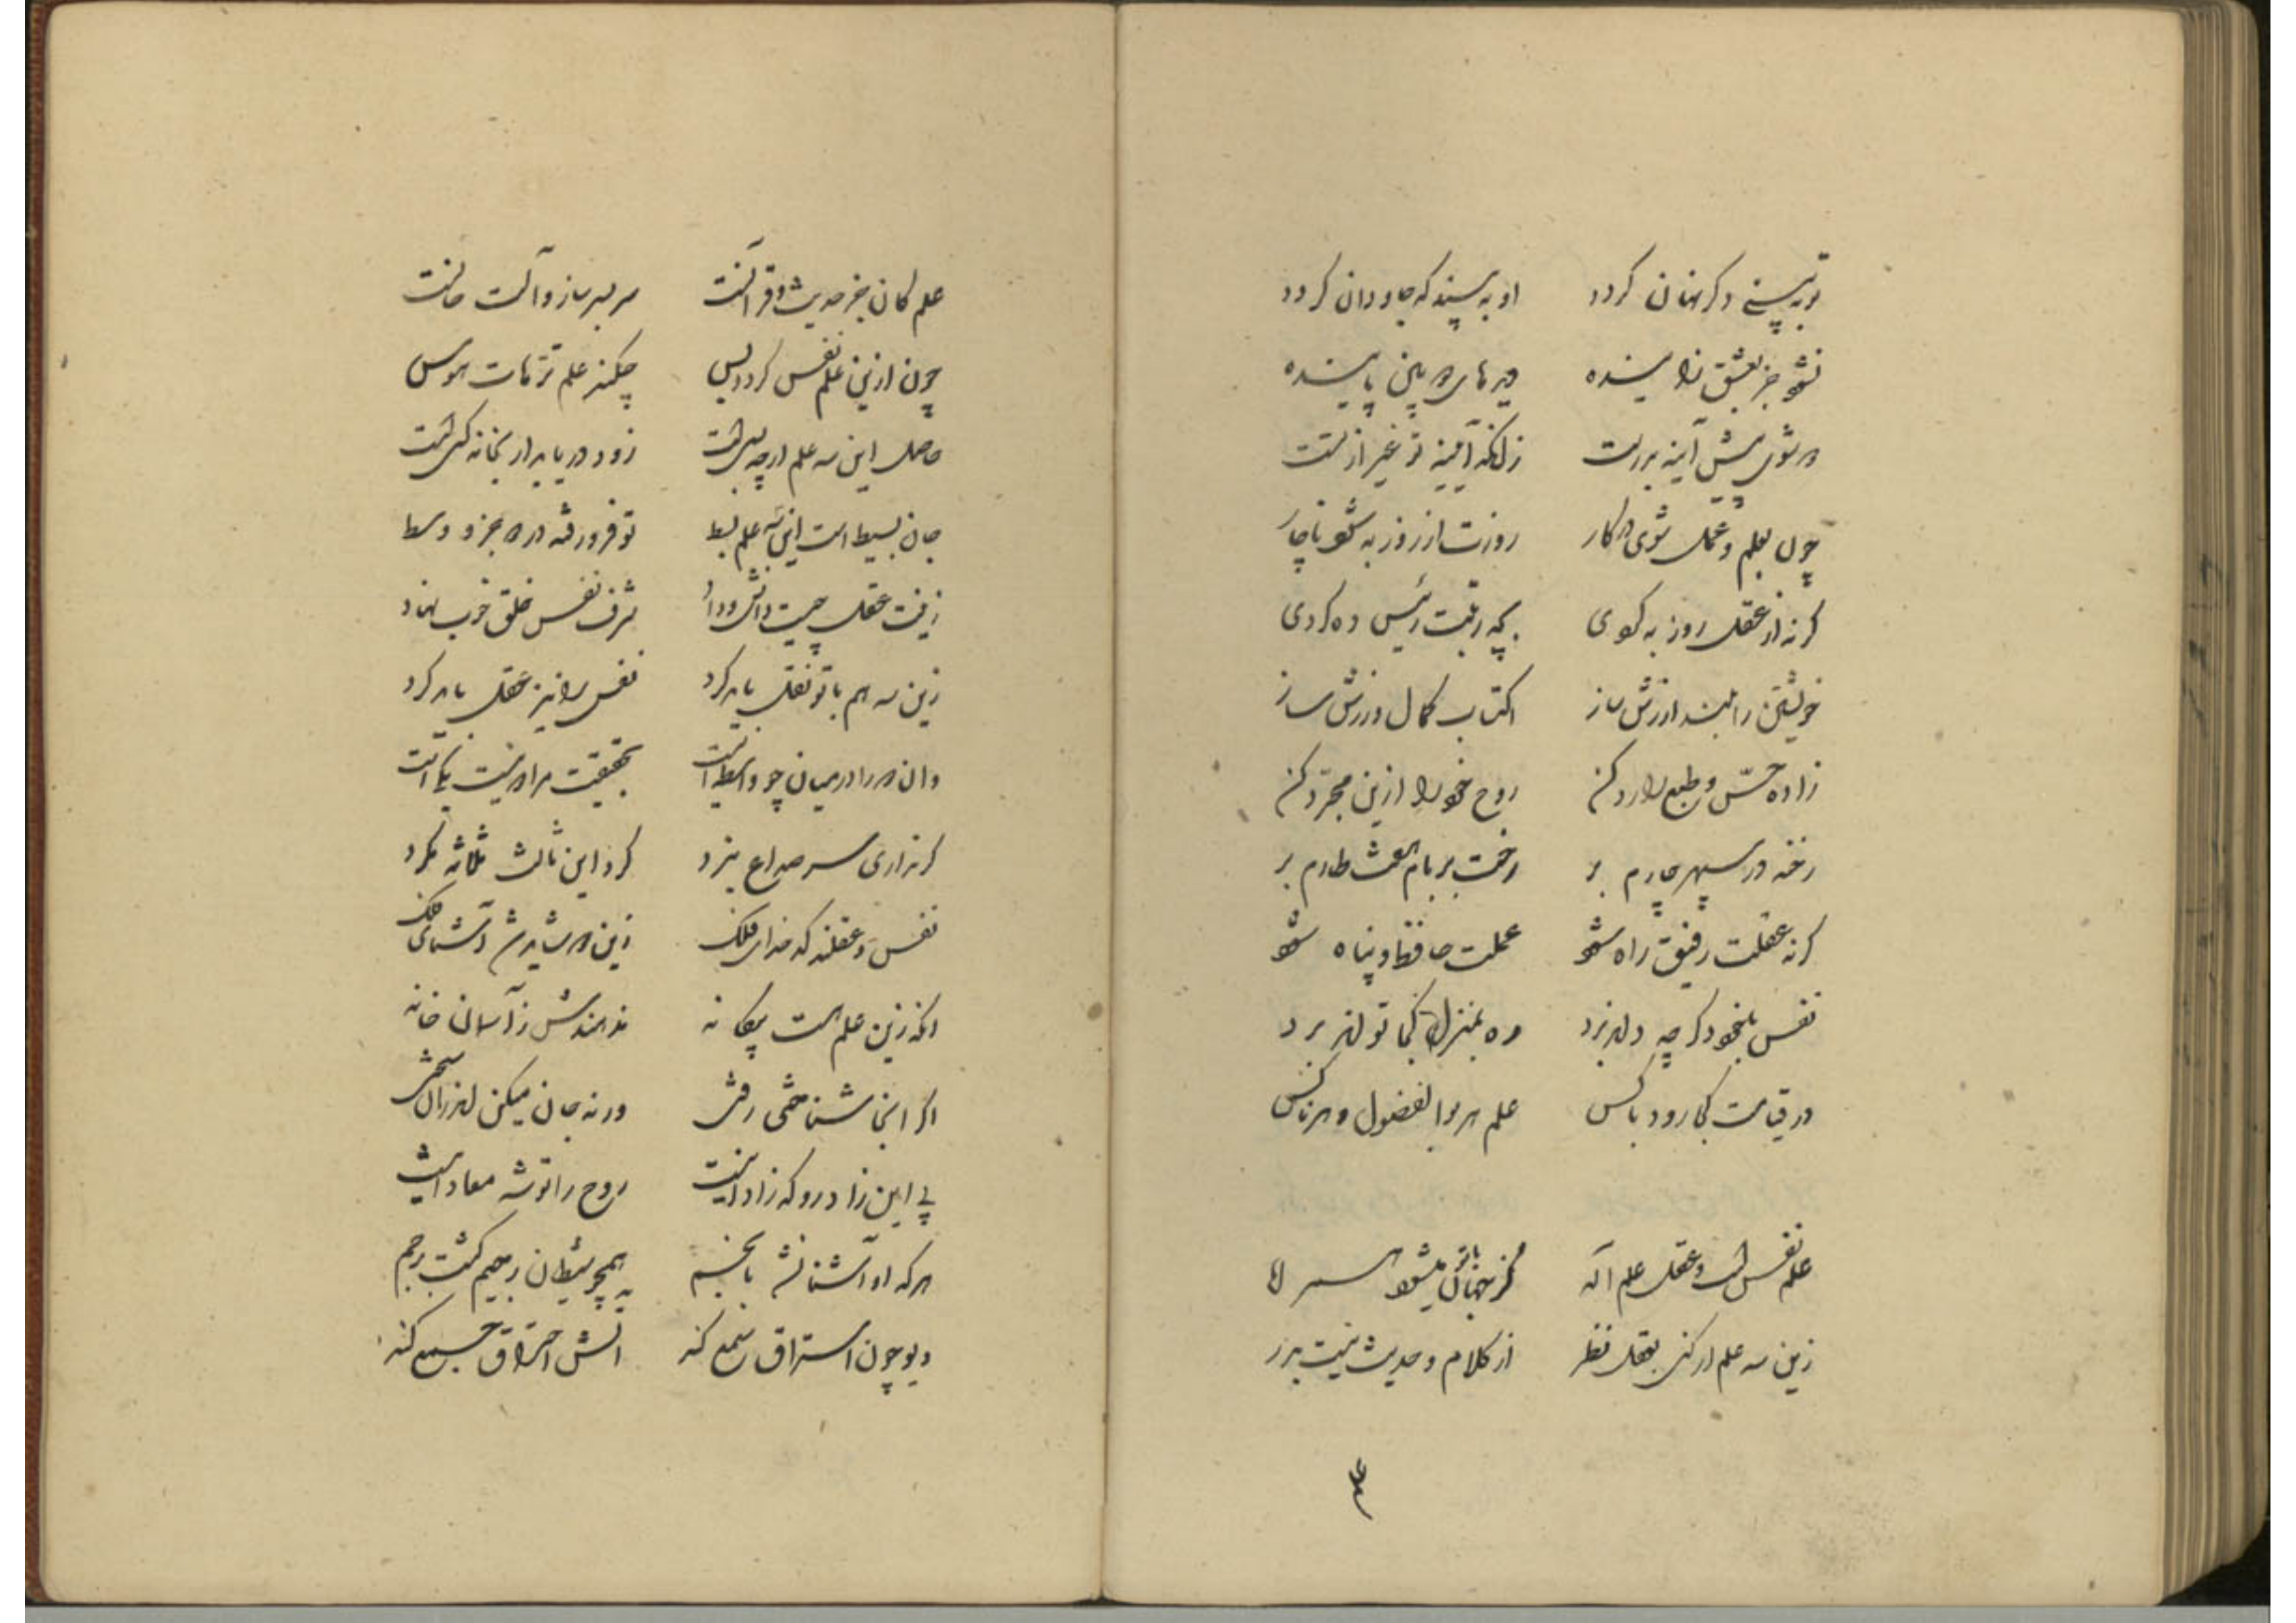 تو نه‌بینی دگر نهان گردد او نه‌بیند که جاودان گردد
نشود جز بعشق زاینده دیرهای دراین پاینده
در شوی پیش آینه بدرست زانکه آیینه تو غیر از تست
چون بعلم و عمل شوی در کار روزت از روز به شود ناچار
گر نه از عقل روز به گردی بچه رتبت رئیس ده گردی
خویشتن را بلند ارزش ساز اکتساب کمال ورزش ساز
زاده حسّ و طبع را رد کن روح خود را ازین مجرّد کن
رخنه در سپهر چارم بر رخت بر بام هفت طارم بر
گر نه عقلت رفیق راه شود عملت حافظ و پناه شود
نفس بیخود گرچه دل ببرد ره بمنزل کجا تواند برد
در قیامت کجا رود با کس علم هر بوالفضول و هر ناکس
علم نفس است و عقل و علم اله کز جهان با تو میشود همراه
زین سه علم ار کنی بعقل نظر از کلام و حدیث نیست بدر
علم
علم کان جز حدیث و قرآنست سربسر ساز و آلت خانست
چون ازین علم نفس گردد بس چکند علم ترهات هوس
حاصل این سه علم ار چه بسی است زود دریابد ار بخانه کسی است
جان بسیط است این سه علم بسیط تو فرو رفته در وجیز و وسیط
زینت عقل چیست دانش و داد شرف نفس خلق خوب نهاد
زین سه هم با تو نقل باید کرد نفس را نیز عقل باید کرد
وان دو را در میان چو واسطه ایست بحقیقت مراد نیست یکایست
گر نداری سر صداع نبرد گرد این ثالث ثلاثه مگرد
نفس و عقلند کدخدای فلک زین دو شاید شد آشنای ملک
آنکه زین علم هست بیگانه ندهندش ز آسمان خانه
اگر اینجا شناختی رفتی ورنه جان میکن اندر آن سختی
پی این زاد رو که زاد اینست روح را توشه معاد اینست
هر که او آشنا نشد با نجم همچو شیطان رجیم گشت برجم
دیو چون استراق سمع کند آتش احتراق جمع کند